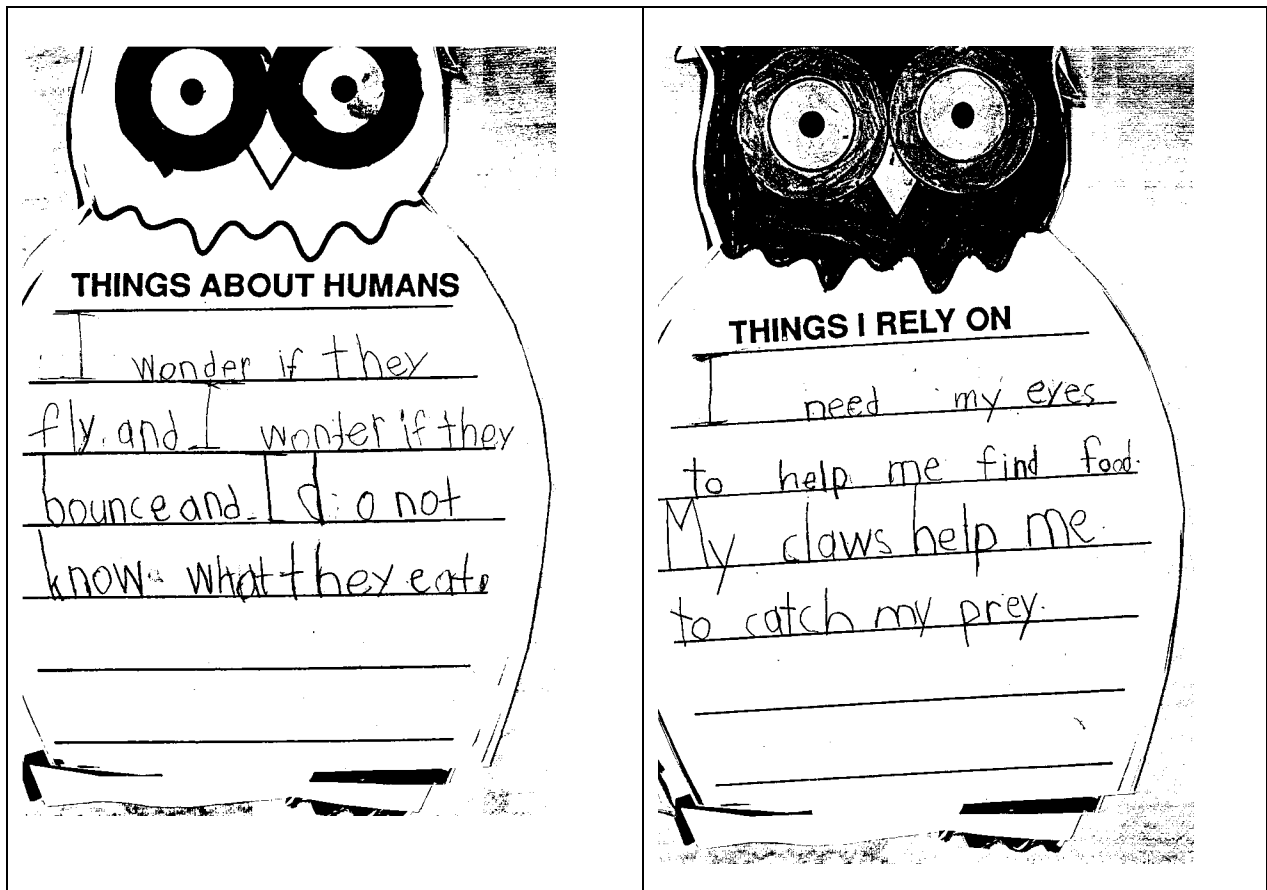 THINGS ABOUT HUMANS
I wonder if they
fly. and I wonder if they
bounce and I do not
know what they eat.
THINGS I RELY ON
I need my eyes
to help me find food.
My claws help me
to catch my prey.